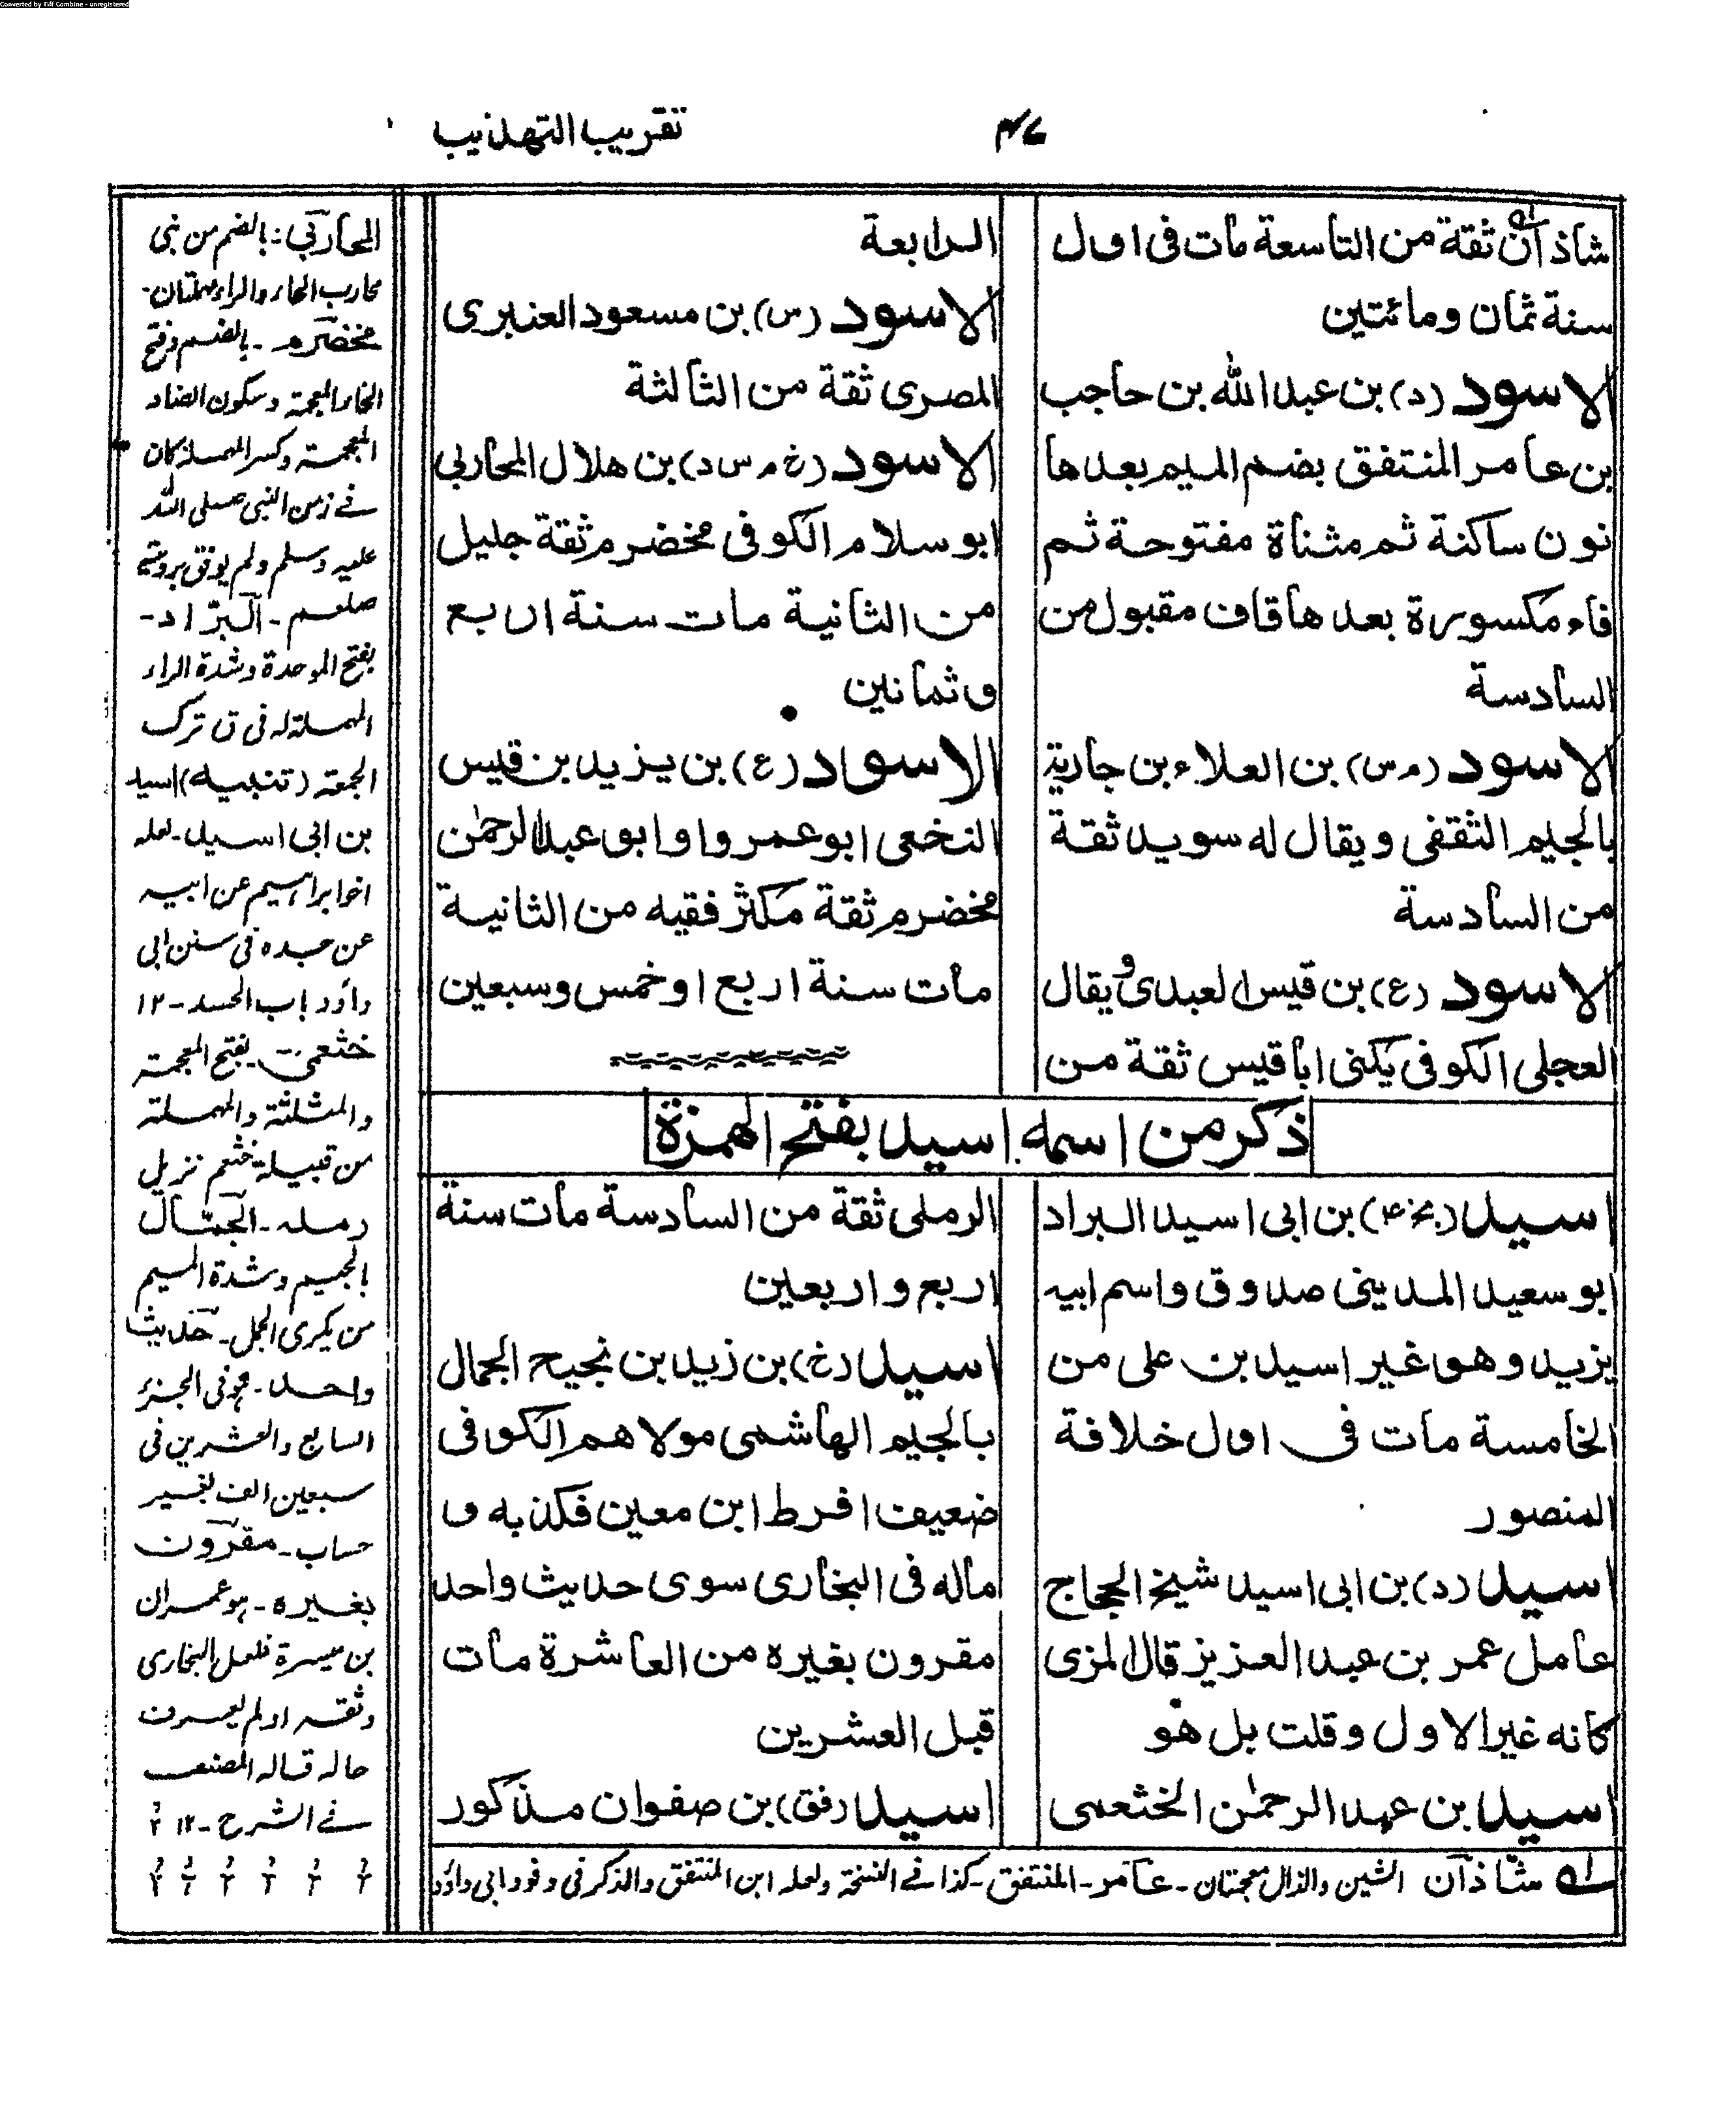 Converted by Tiff Combine - unregistered
۴۷
تقريب التهذيب
شاذان ثقة من التاسعة مات فى اول
سنة ثمان ومائتين
الاسود (د) بن عبدالله بن حاجب
بن عامر المنتفق بضم الميم بعدها
نون ساكنة ثم مثناة مفتوحة ثم
فاء مكسورة بعدها قاف مقبول من
السادسة
الاسود (م س) بن العلاء بن جارية
بالجيم الثقفى ويقال له سويد ثقة
من السادسة
الاسود (ع) بن قيس العبدى ويقال
العجلى الكوفى يكنى ابا قيس ثقة من
الرابعة
الاسود (س) بن مسعود العنبرى
المصرى ثقة من الثالثة
الاسود (خ م س د) بن هلال المحاربى
ابو سلام الكوفى مخضرم ثقة جليل
من الثانية مات سنة اربع
وثمانين
الاسود (ع) بن يزيد بن قيس
النخعى ابو عمرو او ابو عبدالرحمٰن
مخضرم ثقة مكثر فقيه من الثانية
مات سنة اربع او خمس وسبعين
ذكر من اسمه اسيد بفتح الهمزة
اسيد (بخ ۴) بن ابى اسيد البراد
ابو سعيد المدينى صدوق واسم ابيه
يزيد وهو غير اسيد بن على من
الخامسة مات فى اول خلافة
المنصور
اسيد (د) بن ابى اسيد شيخ الحجاج
عامل عمر بن عبد العزيز قال المزى
كانه غير الاول وقلت بل هو
اسيد بن عبد الرحمٰن الخثعمى
الرملى ثقة من السادسة مات سنة
اربع واربعين
اسيد (خ) بن زيد بن نجيح الجمال
بالجيم الهاشمى مولاهم الكوفى
ضعيف افرط ابن معين فكذبه و
ماله فى البخارى سوى حديث واحد
مقرون بغيره من العاشرة مات
قبل العشرين
اسيد (فق) بن صفوان مذكور
المحاربى: بالضم من بنى
محارب الحاء والراء مهملتان.
مخضرم - بالضم وفتح
الخاء المعجمة وسكون الضاد
المعجمة وكسر المهملة كان
فے زمن النبى صلى الله
عليه وسلم ولم يوفق برويته
صلعم - البرّاد -
بفتح الموحدة وشدة الراء
المهملة له فى ق ترك
الجمعة (تنبيه) اسيد
بن ابى اسيد - لعله
اخو ابراهيم عن ابيه
عن جده فى سنن ابى
داؤد باب الحسد - ۱۲
خثعمى - بفتح المعجمة
والمثلثة والمهملة
من قبيلة خثعم نزيل
رمله - الجمّال
بالجيم وشدة الميم
من يكرى الجمل - حديث
واحد - هو فى الجزء
السابع والعشرين فى
سبعين الف بغير
حساب - مقرون
بغيره - هو عمران
بن ميسرة فلعل البخارى
وثقه او لم يعرف
حاله قاله المصنف
فے الشرح - ۱۲
ـلـہ شاذان الشين والذال معجمتان - عامر - المنتفق - كذا فے النسخة ولعله ابن المنتفق والذكر فى وفود ابى داؤد